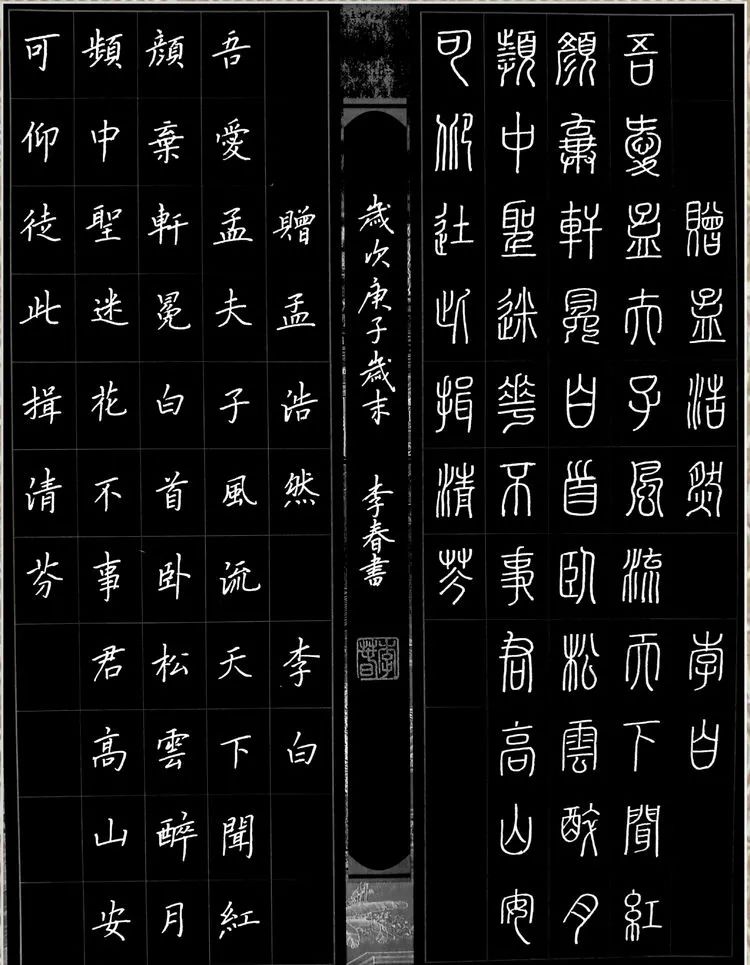 贈孟浩然 李白
吾愛孟夫子風流天下聞紅
顏棄軒冕白首臥松雲醉月
頻中聖迷花不事君高山安
可仰徒此揖清芬
歲次庚子歲末 李春書
李春
贈孟浩然 李白
吾愛孟夫子風流天下聞紅
顏棄軒冕白首臥松雲醉月
頻中聖迷花不事君高山安
可仰徒此揖清芬